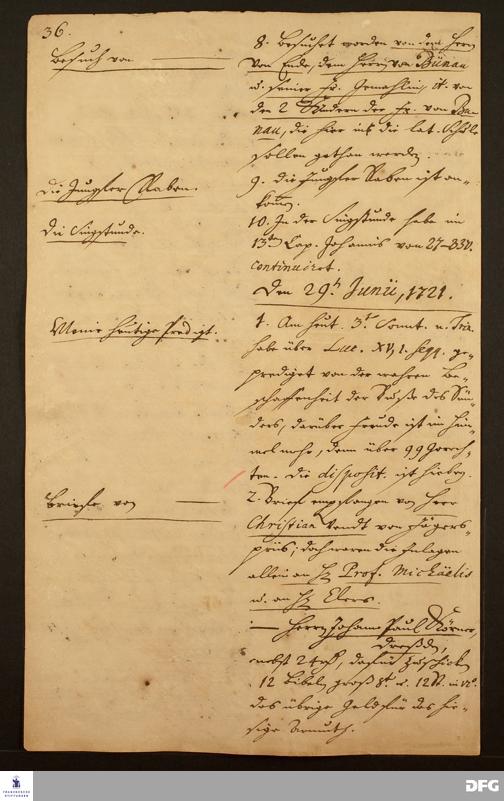 36.
Besuch von
8. Besuchet worden von dem Herrn
von Ende, dem Herrn von Bünau
u. seiner Fr. Gemahlin, it. von
den 2 Kindern der Fr. von Bü-
nau, die hier in die lat. Schule
sollen gethan werden.
Die Jungfer Raben.
9. Die Jungfer Raben ist an-
kom̄en.
Die Singstunde.
10. In der Singstunde habe im
13ten Cap. Johannis von 27-
continuiret.
Den 29. Junii, 1721.
Meine heutige Predigt.
1. Am heut. 3t. Sonnt. n. Trin.
habe über Luc. XV, 1. seqq. ge-
prediget von der wahren Be-
schaffenheit der Buße des Sün-
ders, darüber Freude ist im Him-
mel mehr, denn über 99 Gerech-
ten. Die disposit. ist hiebey.
Briefe von
2. Brief empfangen von Herr
Christian Wendt von
doch waren die Inlagen
allein an H. Prof. Michaelis
u. an H. Elers.
— Herrn Johann Paul Körner,
Dreßd.,
nebst 2 dafür zu schicken
12 Bibeln groß 8t. u. 12
das übrige Geld für das hie-
sige Armuth.
FRANCKESCHE
STIFTUNGEN
DFG